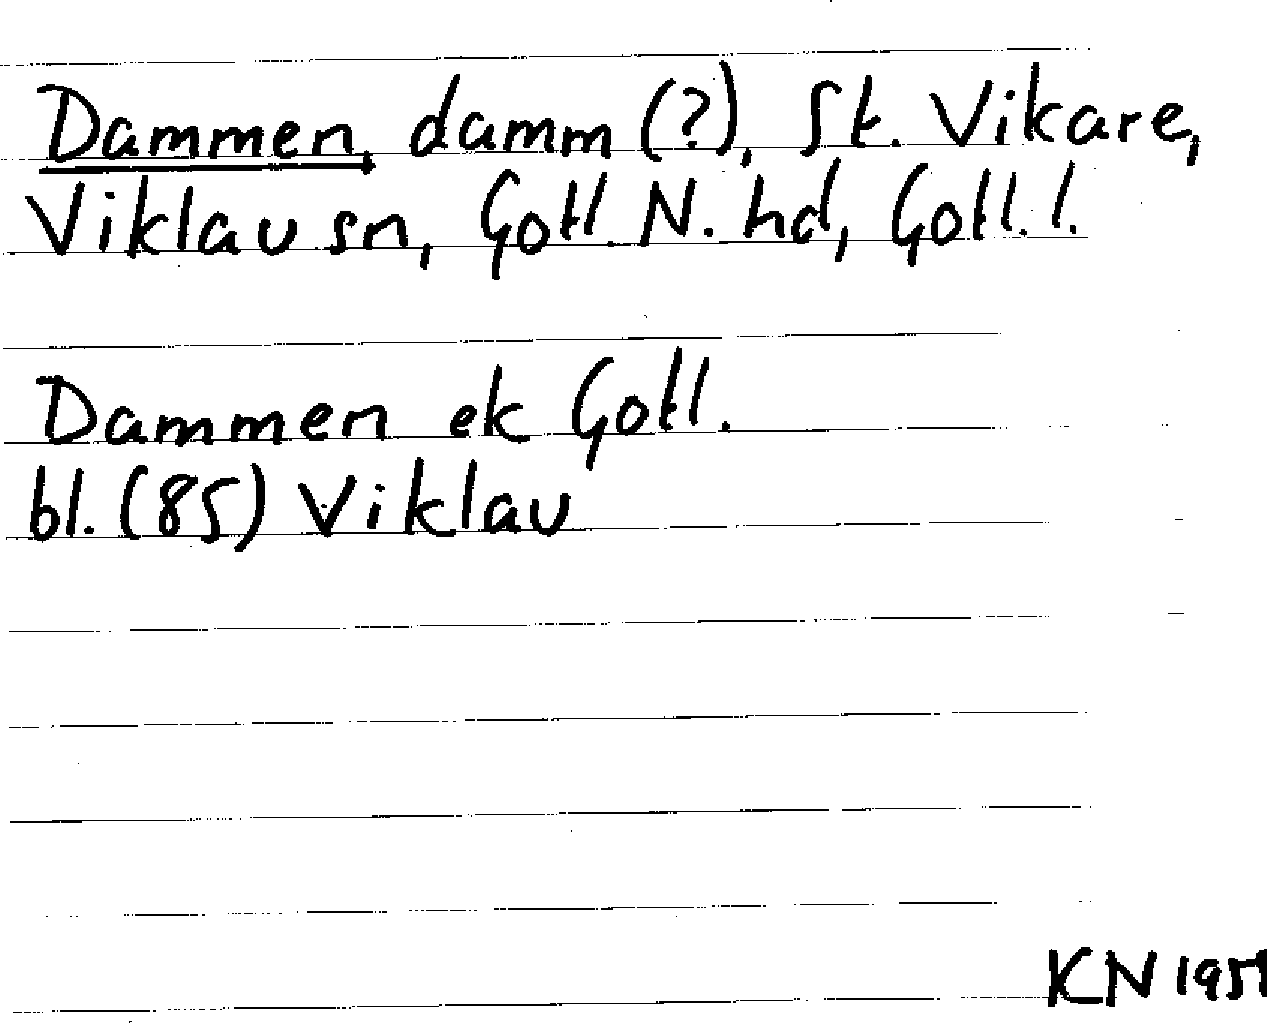 Dammen, damm (?), St. Vikare,
Viklau sn, Gotl. N. hd, Gotl. l.
Dammen ek Gotl.
bl. (85) Viklau
KN